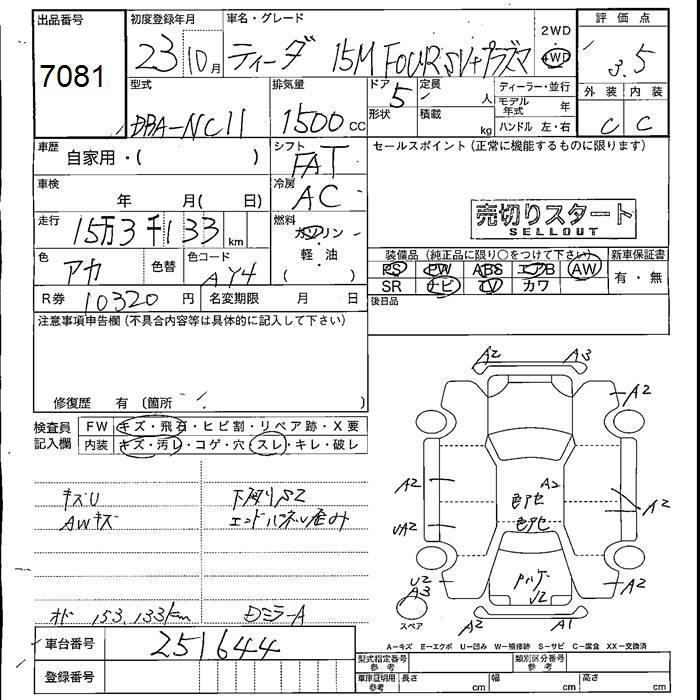 出品番号 初度登録年月 車名・グレード 2WD 評価点
7081 23 10月 ティーダ 15M FOUR SV+プラズマ 4WD 3.5
型式 排気量 ドア 5 定員 人 ディーラー・並行 外装 内装
DBA-NC11 1500cc 形状 積載 kg モデル年式 年 C C
ハンドル 左・右
車歴 自家用・( ) シフト FAT セールスポイント (正常に機能するものに限ります)
車検 年 月( 日) 冷房 AC
売切りスタート
SELLOUT
走行 15万3千133km 燃料 ガソリン・軽・油
装備品 (純正品に限り○をつけて下さい) 新車保証書
色 アカ 色替 色コード AY4 PS PW ABS エアB AW 有・無
SR ナビ TV カワ
R券 10320円 名変期限 月 日 後日品
注意事項申告欄 (不具合内容等は具体的に記入して下さい)
修復歴 有 (箇所 )
検査員記入欄 FW キズ・飛石・ヒビ割・リペア跡・X要
内装 キズ・汚レ・コゲ・穴・スレ・キレ・破レ
A2 A3
A2
A2 A2 色アセ A2
UA2 色アセ
キズU 下廻りS2
AWキズ エンドパネル歪み
U2 A3 U2 A2
スペア
A2 A1
オド 153,133km Dミラー A
車台番号 251644
A-キズ E-エクボ U-凹み W-補修跡 S-サビ C-腐食 XX-交換済
登録番号
型式指定番号参考 類別区分番号参考
車庫証明用参考 長さ cm 幅 cm 高さ cm